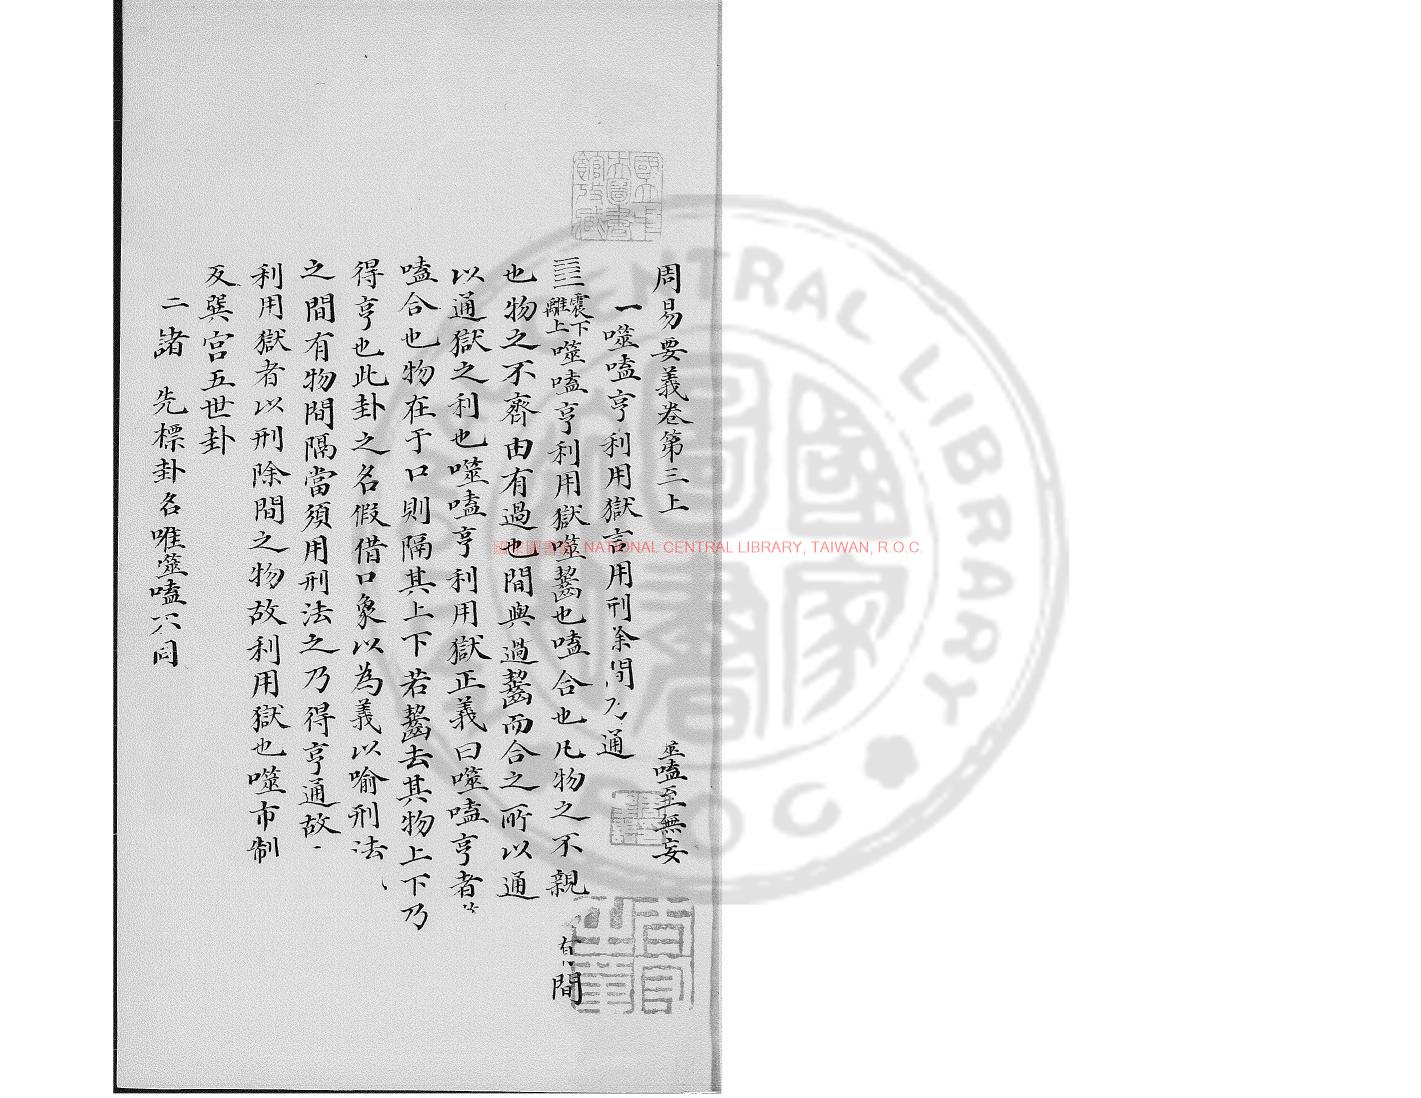 周易要義卷第三上 噬嗑至無妄
一噬嗑亨利用獄言用刑除間乃通
䷔震下離上噬嗑亨利用獄噬齧也嗑合也凡物之不親 有間
也物之不齊由有過也間與過齧而合之所以通
以通獄之利也噬嗑亨利用獄正義曰噬嗑亨者
嗑合也物在于口則隔其上下若齧去其物上下乃
得亨也此卦之名假借口象以為義以喻刑法
之間有物間隔當須用刑法之乃得亨通故
利用獄者以刑除間之物故利用獄也噬市制
反巽宮五世卦
二諸 先標卦名唯噬嗑不同
國家圖書館 NATIONAL CENTRAL LIBRARY, TAIWAN, R.O.C.
國立中央圖書館收藏
NATIONAL CENTRAL LIBRARY R O C
國家圖書